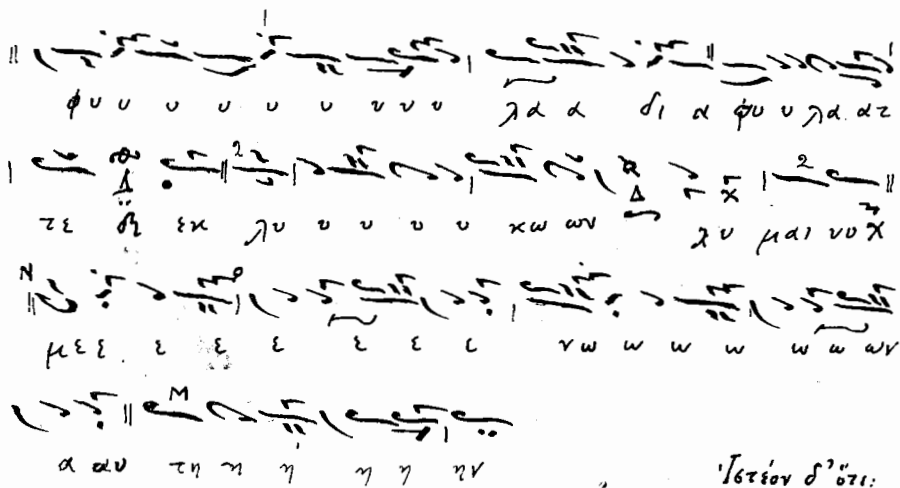 φυ υ υ υ υ υ υ υ υ λα α δι α φυ υ λα ατ
τε εκ λυ υ υ υ υ κω ων λυ μαι νο
με ε ε ε ε ε ε ε νω ω ω ω ω ω ων
α αυ τη η ή η η ην
Ἰστέον δ' ὅτι: